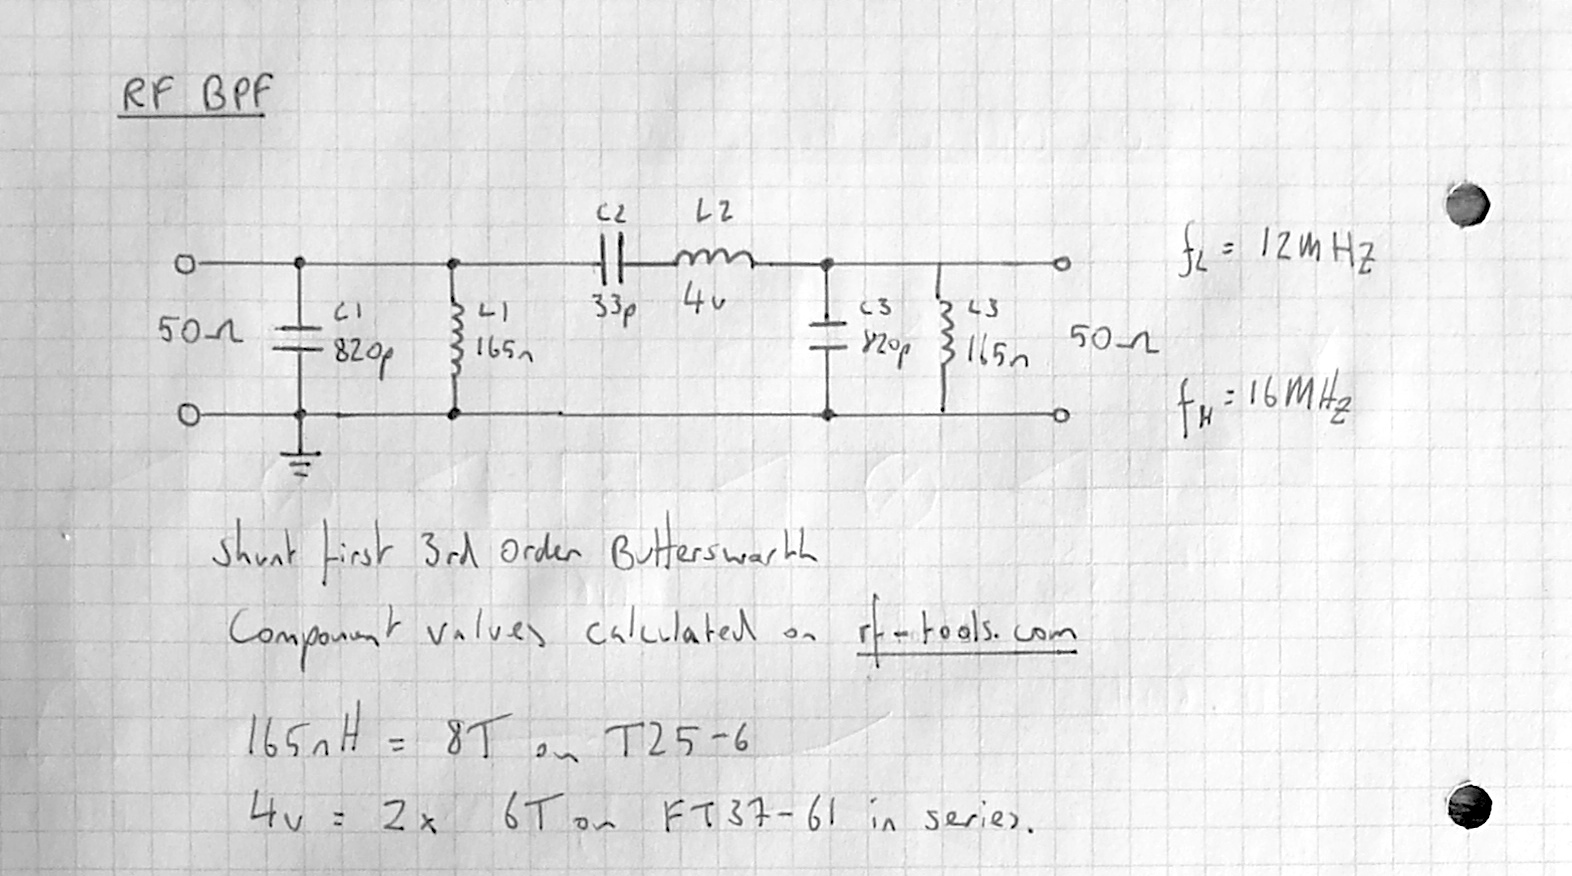 RF BPF
C2 L2
33p 4u
50Ω
C1
820p
L1
165n
C3
820p
L3
165n
50Ω
fL = 12MHz
fH = 16MHz
Shunt first 3rd Order Butterswarth
Component values calculated on rf-tools.com
165nH = 8T on T25-6
4u = 2x 6T on FT37-61 in series.